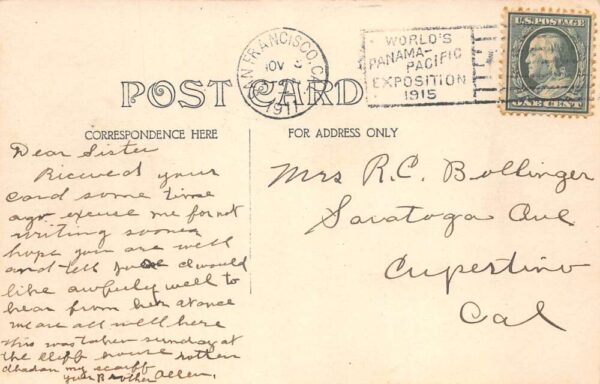 SAN FRANCISCO, CAL.
NOV
1911
WORLD'S
PANAMA-
PACIFIC
EXPOSITION
1915
U.S. POSTAGE
ONE CENT
POST CARD
CORRESPONDENCE HERE
FOR ADDRESS ONLY
Dear Sister
Rieved your
card some time
ago excuse me for not
writing sooner
hope you are well
and tell I would
like awfuly well to
hear from her at once
we are all well here
this was taken sunday at
the cliff house rotten
my scarff
your Brother Allen.
Mrs R.C. Bollinger
Saratoga Ave
Cupertino
Cal